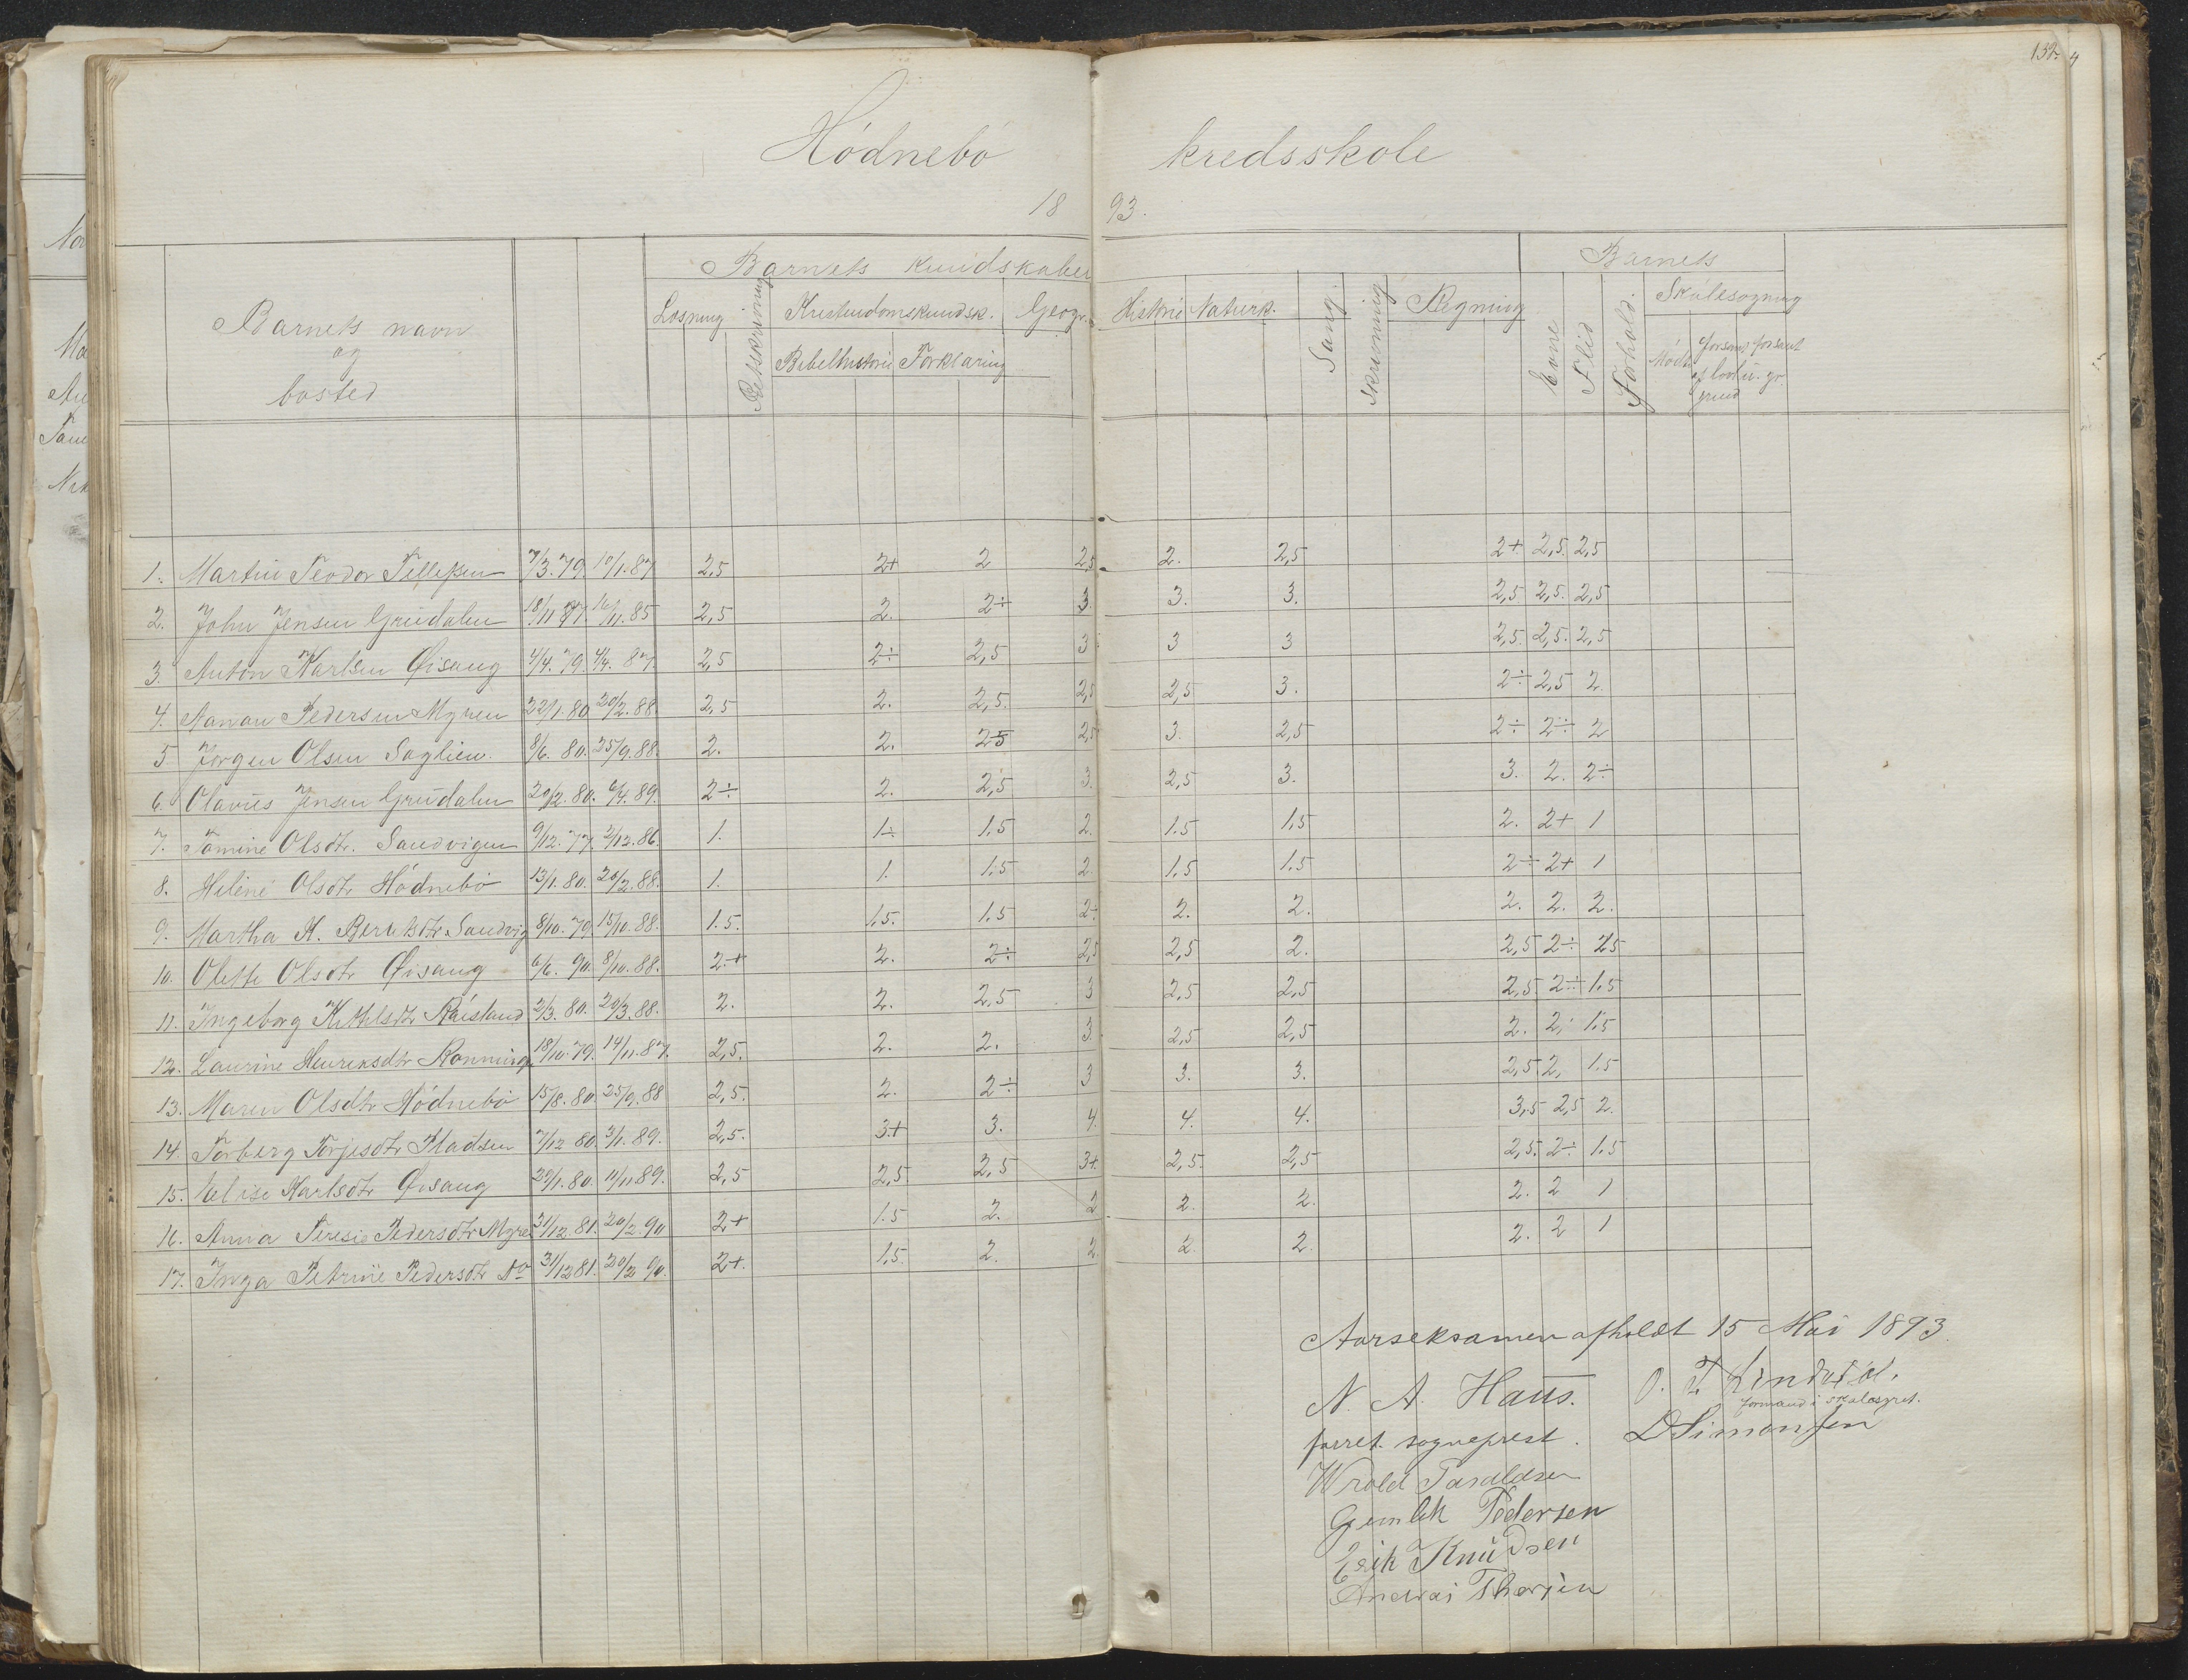 132.
Hódnebó kredsskole
18 93.
Barnets navn og bosted
Barnets kundskaber
Barnets
Losning Retskrivning Kristendomskundsk. Geogr. Historie Naturk. Sang. Skrivning Regning Evne Flid Forhold. Skólesogning
Bibelhistorie Forklaring Mødt forsømt af lovl. grund forsømt u. gr.
1. Martin Teodor Tellefsen 7/3. 79. 10/1. 87 2,5 2+ 2 2,5 2. 2,5 2+ 2,5. 2,5
2. John Jensen Grudalen 18/11 87. 16/11. 85 2,5 2. 2÷ 3. 3. 3. 2,5 2,5. 2,5
3. Anton Karlsen Øisang 4/4. 79. 4/4. 87. 2,5 2÷ 2,5 3 3 3 2,5. 2,5. 2,5
4. Aanan Pedersen Myren 22/1. 80 20/2. 88. 2,5 2. 2,5. 2,5 2,5 3. 2÷ 2,5 2
5 Jørgen Olsen Saglien. 8/6. 80. 25/9. 88. 2. 2. 25 2,5 3. 2,5 2÷ 2÷ 2
6. Olavus Jensen Grudalen 20/12. 80. 6/4. 89. 2÷ 2. 2,5 3. 2,5 3. 3. 2. 2÷
7. Tomine Olsdtr. Sandvigen 9/12. 77. 2/12. 86. 1. 1÷ 1.5 2. 1.5 1,5 2. 2+ 1
8. Heline Olsdtr Hódnebó 13/1. 80. 20/2. 88. 1. 1. 1.5 2. 1,5 1.5 2÷ 2+ 1
9. Martha A. Berntsdtr Sandvig 8/10. 79. 15/10. 88. 1.5. 1.5. 1.5 2÷ 2. 2. 2. 2. 2.
10. Olette Olsdtr Øisang 6/6. 90. 8/10. 88. 2+ 2. 2÷ 2,5 2,5 2. 2,5 2÷ 25
11. Ingeborg Kittilsdtr Røisland 2/3. 80. 20/3. 88. 2. 2. 2,5 3 2,5 2,5 2,5. 2÷ 1.5
12. Laurine Henriksdtr Rønninge 18/10. 79. 14/11. 87. 2,5. 2. 2. 3. 2,5 2,5 2. 2. 1.5
13. Maren Olsdtr Hódnebó 15/8. 80. 25/9. 88 2,5. 2. 2÷ 3 3. 3. 2,5 2, 1.5
14. Torberg Torjusdtr Pladsen 7/12 80. 3/1. 89. 2,5. 3+ 3. 4. 4. 4. 3,5 2,5 2.
15. Nelise Karlsdtr Øisang 29/1. 80. 11/11 89. 2,5 2,5 2,5 3+. 2,5. 2,5 2,5. 2÷ 1.5
16. Anna Teresie Pedersdtr Myre 31/12. 81. 20/2. 90 2+ 1.5 2. 2 2. 2. 2. 2 1
17. Inga Petrine Pedersdtr do 31/12 81. 20/2 90. 2+. 1,5. 2. 2. 2. 2. 2. 2 1
Aarseksamen afholdt 15 Mai 1893.
N. A. Haus. O. T. Lindstøl.
forret. sogneprest. formand i skolestyret.
D Simonsen
Wrold Taraldsen
Gunlek Pedersen
Erik Knudsen
Andreas Thorsen